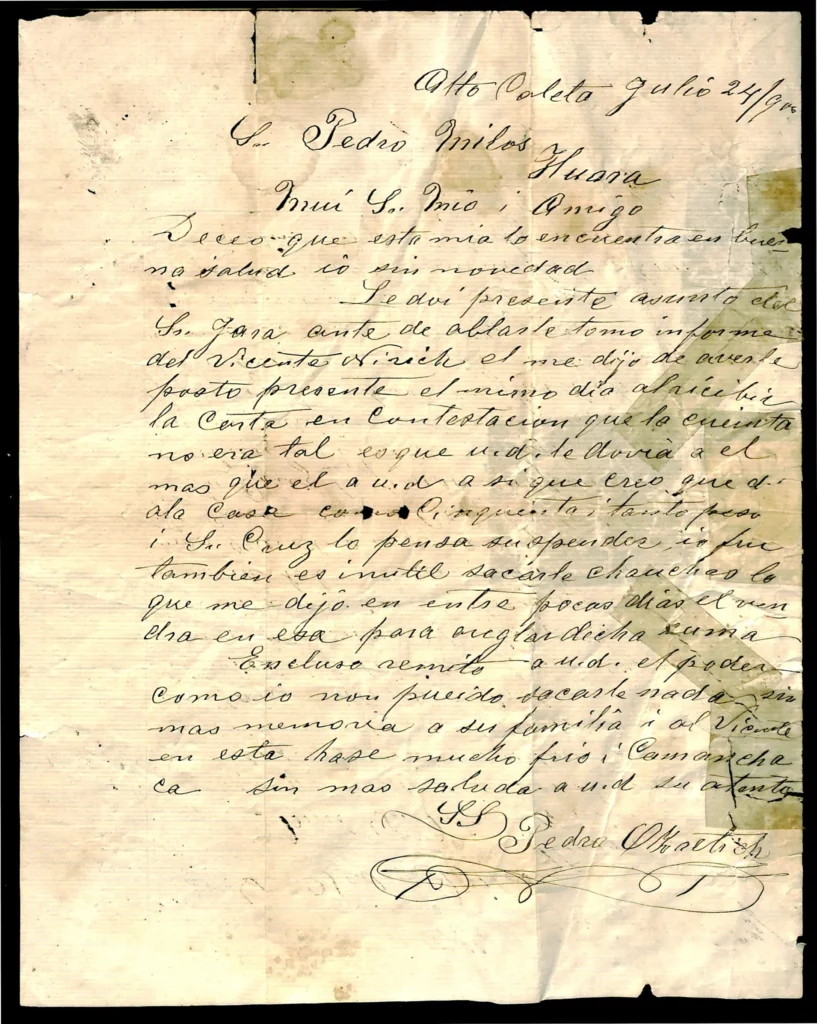 Alto Caleta Julio 24/900
Sr. Pedro Milos
Huara
Mui Sr. Mio i Amigo
Deceo que esta mia lo encuentra en bue-
na salud io sin novedad
Le doi presente asunto del
Sr. Jara ante de ablarle tomo informe
del Vicente el me dijo de averle
posto presente el mimo dia al ricibir
la Carta en Contestacion que la cuenta
no era tal es que u.d. le dovia a el
mas que el a u.d a si que creo que d.
ala Casa como Cinquenta i tanto peso
i Sr. Cruz lo pensa suspender, io fui
tambien es inutil sacarle chauchas lo
que me dijo en entre pocas dias el ven
dra en esa para dicha suma
Encluso remito a u.d. el poder
como io non pueido sacarle nada sin
mas memoria a su familia i al Vicente
en esta hase mucho frio i Camancha
ca sin mas saluda a u.d su atento
SS
Pedro